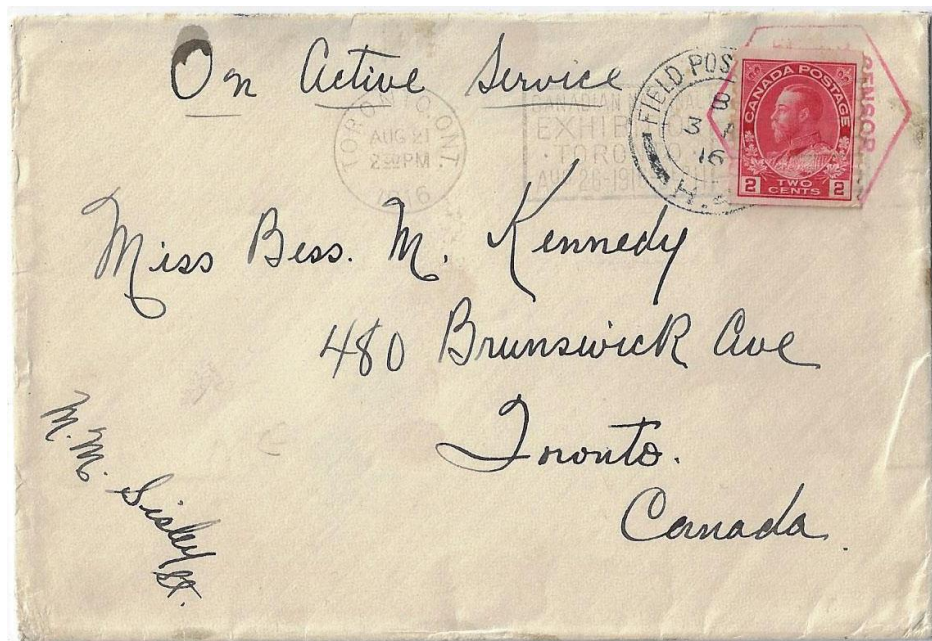 On Active Service
TORONTO, ONT.
AUG 21
2 PM
1916
CANADIAN
EXHIB
TORO O
AUG 26-191
FIELD POS
3
16
H.
CENSOR
CANADA POSTAGE
2 TWO CENTS 2
Miss Bess. M. Kennedy
480 Brunswick Ave
Toronto.
Canada.
M. M. Sisley